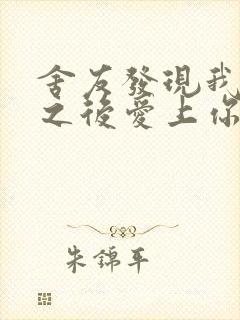 舍友發現我
之後愛上你
朱錦平